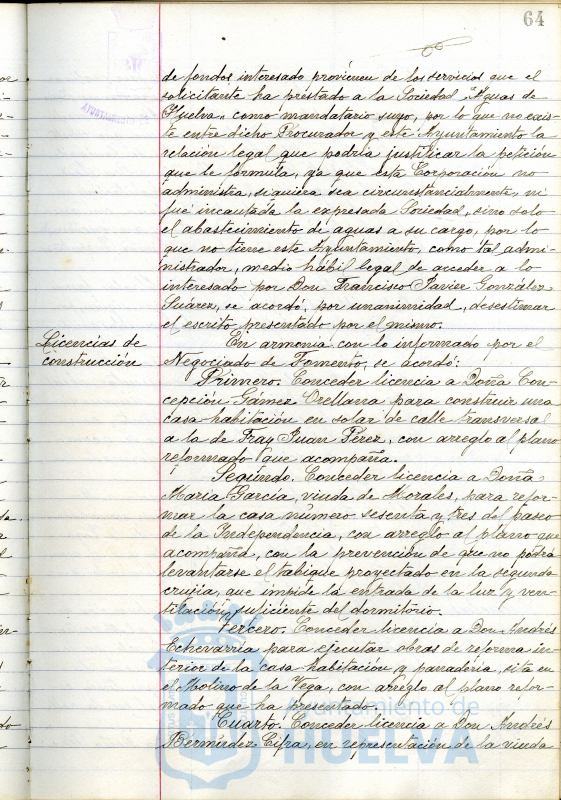 64
de fondos interesado provienen de los servicios que el
solicitante ha prestado a la Sociedad "Aguas de
Huelva" como mandatario suyo, por lo que no exis-
te entre dicho Procurador y este Ayuntamiento la
relación legal que podría justificar la petición
que le formula, ya que esta Corporación no
administra, siquiera sea circunstancialmente, ni
fué incautada la expresada Sociedad, sino solo
el abastecimiento de aguas a su cargo, por lo
que no tiene este Ayuntamiento, como tal admi-
nistrador, medio hábil legal de acceder a lo
interesado por Don Francisco Javier González
Suárez, se acordó, por unanimidad, desestimar
el escrito presentado por el mismo.
Licencias de
construcción
En armonía con lo informado por el
Negociado de Fomento, se acordó:
Primero. Conceder licencia a Doña Con-
cepción Gámez Orellana para construir una
casa-habitación en solar de calle transversal
a la de Fray Juan Pérez, con arreglo al plano
reformado que acompaña.
Segundo. Conceder licencia a Doña
María García, viuda de Morales, para refor-
mar la casa número sesenta y tres del paseo
de la Independencia, con arreglo al plano que
acompaña, con la prevención de que no podrá
levantarse el tabique proyectado en la segunda
crujía, que impide la entrada de la luz y ven-
tilación suficiente del dormitorio.
Tercero. Conceder licencia a Don Andrés
Echevarría para ejecutar obras de reforma in-
terior de la casa habitación y panadería, sita en
el Molino de la Vega, con arreglo al plano refor-
mado que ha presentado.
Cuarto. Conceder licencia a Don Andrés
Bermúdez Cifra, en representación de la viuda
Ayuntamiento de
HUELVA